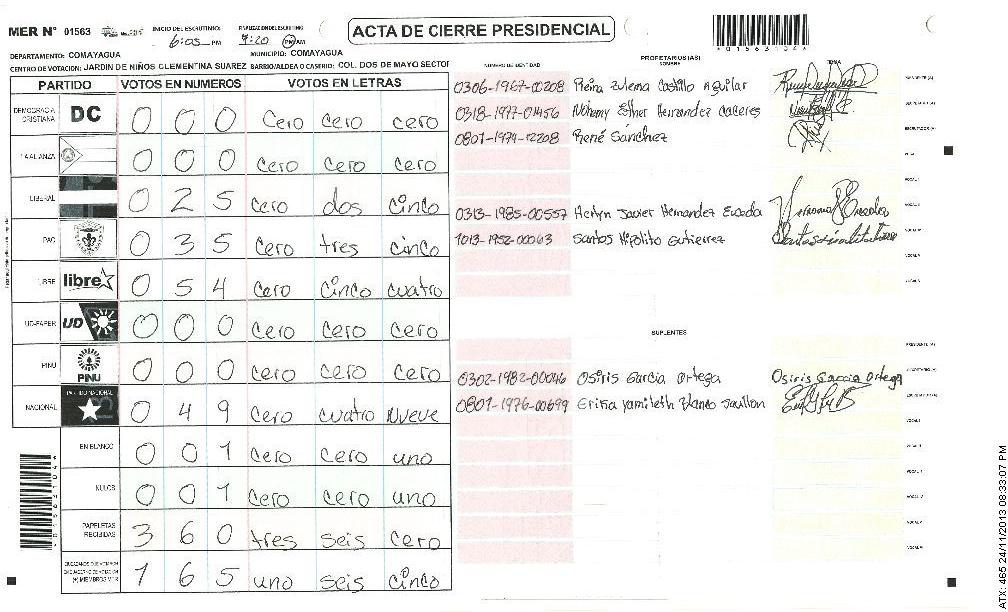 MER Nº 01563
INICIO DEL ESCRUTINIO: 6:05 PM
FINALIZACION DEL ESCRUTINIO 7:20 PM AM
ACTA DE CIERRE PRESIDENCIAL
DEPARTAMENTO: COMAYAGUA MUNICIPIO: COMAYAGUA
CENTRO DE VOTACION: JARDIN DE NIÑOS CLEMENTINA SUAREZ BARRIO/ALDEA O CASTRIO: COL. DOS DE MAYO SECTOR
PARTIDO VOTOS EN NUMEROS VOTOS EN LETRAS
DEMOCRACIA CRISTIANA DC 0 0 0 Cero cero cero
LA ALIANZA 0 0 0 cero Cero Cero
LIBERAL 0 2 5 cero dos cinco
PAC 0 3 5 cero tres cinco
LIBRE libre 0 5 4 cero cinco cuatro
UD-FAPER UD 0 0 0 cero cero cero
PINU PINU 0 0 0 cero cero cero
NACIONAL PARTIDO NACIONAL 0 4 9 cero cuatro nueve
EN BLANCO 0 0 1 cero cero uno
NULOS 0 0 1 cero cero uno
PAPELETAS RECIBIDAS 3 6 0 tres seis cero
(+) MIEMBROS MER 1 6 5 uno seis cinco
PROPIETARIOS(AS)
NUMERO DE IDENTIDAD NOMBRE FIRMA
0306-1967-00208 Reina Zulema Castillo Aguilar PRESIDENTE (A)
0318-1977-01456 Nohemy Esther Hernandez Caceres SECRETARIO (A)
0801-1979-12208 René Sánchez ESCRUTADOR (A)
VOCAL I
0313-1985-00557
1013-1952-00063 Santos Hipolito Gutierrez
SUPLENTES
PRESIDENTE (A)
0302-1982-00046 Osiris Garcia Ortega Osiris Garcia Ortega SECRETARIO (A)
0801-1976-00699 ESCRUTADOR (A)
ATX: 465 24/11/2013 08:33:07 PM